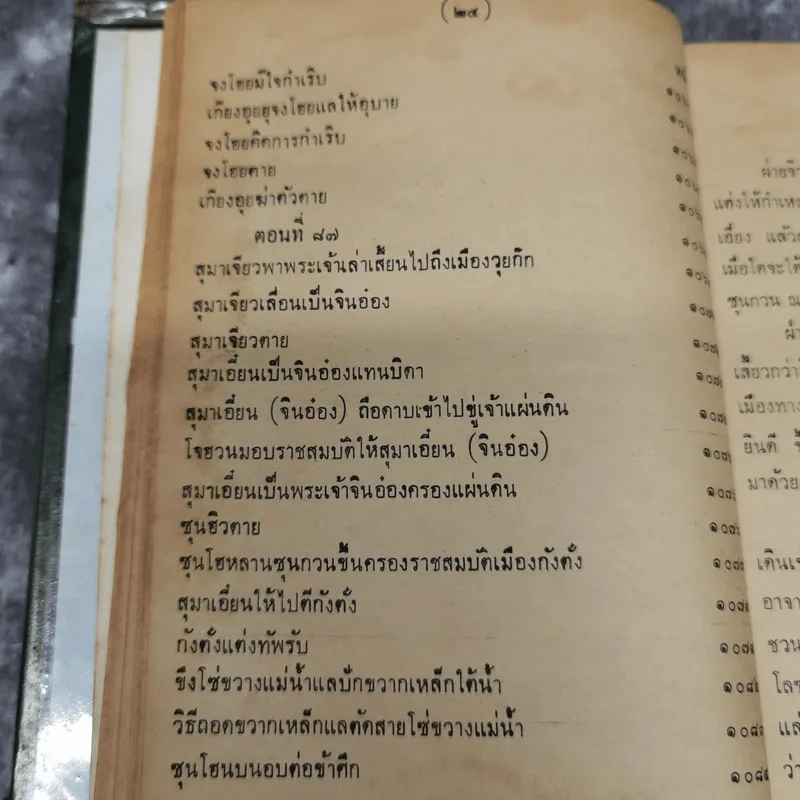 (๒๔)
จงโฮยมีใจกำเริบ
เกียงอุยยุจงโฮยแลให้อุบาย
จงโฮยคิดการกำเริบ
จงโฮยตาย
เกียงอุยฆ่าตัวตาย
ตอนที่ ๘๗
สุมาเจียวพาพระเจ้าเล่าเสี้ยนไปถึงเมืองวุยก๊ก
สุมาเจียวเลื่อนเป็นจินอ๋อง
สุมาเจียวตาย
สุมาเอี๋ยนเป็นจินอ๋องแทนบิดา
สุมาเอี๋ยน (จินอ๋อง) ถือดาบเข้าไปขู่เจ้าแผ่นดิน
โจฮวนมอบราชสมบัติให้สุมาเอี๋ยน (จินอ๋อง)
สุมาเอี๋ยนเป็นพระเจ้าจินอ๋องครองแผ่นดิน
ซุนฮิวตาย
ซุนโฮหลานซุนกวนขึ้นครองราชสมบัติเมืองกังตั๋ง
สุมาเอี๋ยนให้ไปตีกังตั๋ง
กังตั๋งแต่งทัพรับ
ขึงโซ่ขวางแม่น้ำแลปักขวากเหล็กใต้น้ำ
วิธีถอดขวากเหล็กแลตัดสายโซ่ขวางแม่น้ำ
ซุนโฮนบนอบต่อข้าศึก
แต่งให้กำเหง
เอี๋ยง แล้ว
เมื่อใดจะได้
ซุนกวน ณ
เสี้ยวกว่า
เมืองทาง
ยินดี
มาด้วย
เดินเ
อาจา
ชวน
โลซ
แล้
ว่า